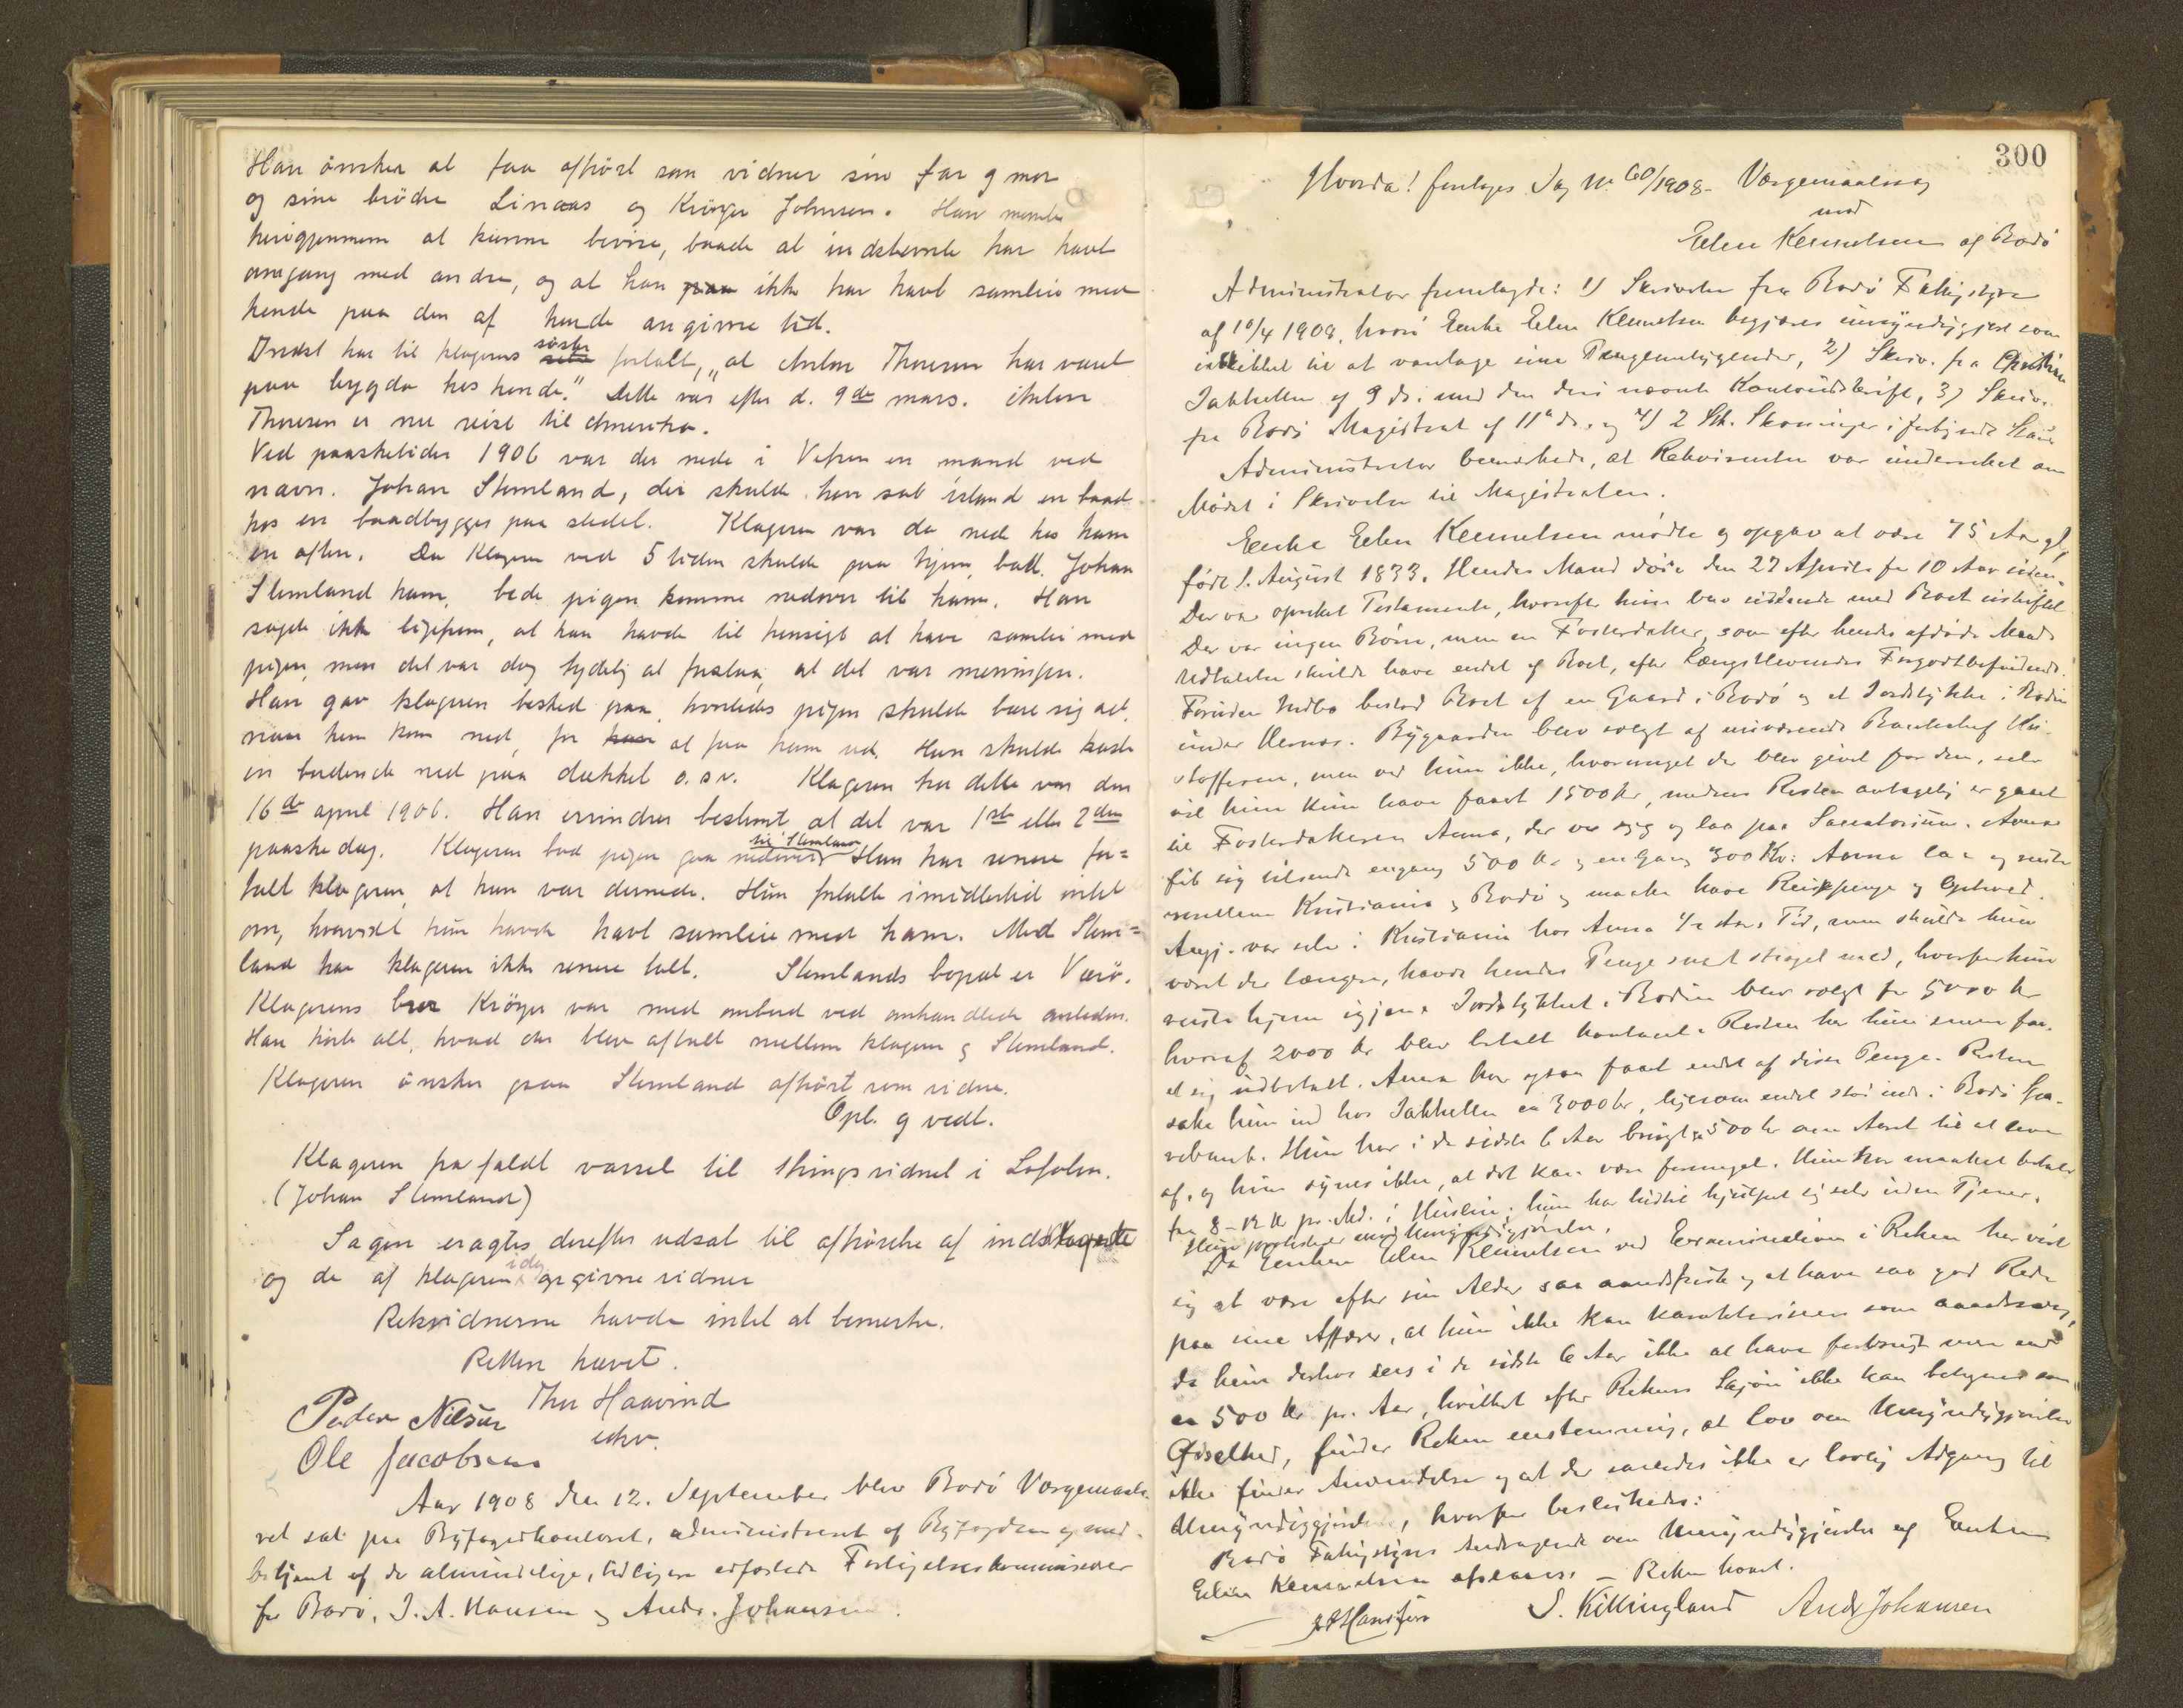 Han ønsker at faa afhørt som vidner sin far og mor
og sine brødre Linaas og Krøger Johnsen. Han mener
herigjennem at kunne bevise, baade at indstevnte har havt
omgang med andre, og at han ikke har havt samleie med
hende paa den af hende angivne tid.
Indst har til klagerens søster fortalt, "at Anton Thoresen har været
paa bygda hos hende." Dette var efter d. 9de mars. Anton
Thoresen er nu reist til Amerika.
Ved paasketider 1906 var der nede i Vefsen en mand ved
navn Johan Stemland, der skulde han sat istand en baad
hos en baadbygger paa stedet. Klageren var da nede hos ham
en aften. Da Klageren ved 5 tiden skulde gaa hjem, bad Johan
Stemland ham, bede pigen komme nedover til ham. Han
sagde ikke ligefrem, at han havde til hensigt at have samleie med
pigen, men det var dog tydelig at forstaa, at det var meningen.
Han gav klageren besked paa, hvorledes pigen skulde bære sig ad,
naar hun kom ned, for at faa ham ud. Hun skulde kaste
en ned paa dækket o.s.v. Klageren tror dette var den
16de april 1906. Han erindrer bestemt at det var 1ste eller 2den
paaskedag. Klageren bad pigen gaa nedover til Stemland. Hun har senere for=
talt klageren, at hun var dernede. Hun fortalte imidlertid intet
om, hvorvidt hun havde havt samleie med ham. Med Stem=
land har klageren ikke senere talt. Stemlands bopæl er Værø.
Klagerens bror Krøger var med ombord ved omhandlede anledn.
Han hørte alt, hvad der blev aftalt mellem klageren og Stemland.
Klageren ønsker ogsaa Stemland afhørt som vidne.
Opl. og vedt.
Klageren frafaldt varsel til thingsvidnet i Lofoten.
(Johan Stemland)
Sagen eragtes derefter udsat til afhørelse af indklagede
og de af klageren idag opgivne vidner
Retsvidnerne havde intet at bemerke.
Retten hævet.
Thor Haavind
Peder Nilsen
edsv.
Ole Jacobsen
Aar 1908 den 12. September blev Bodø Værgemaals-
ret sat paa Byfogedkontoret, administreret af Byfogden og med-
betjent af de almindelige, tidligere edfæstede Forligelseskommissærer
for Bodø, J. A. Hansen og Andr. Johansen.
300
Hvorda! foretages Sag No 60/1908. Værgemaalssag
mod
Elen Kennelsen af Bodø
Administrator fremlagde: 1) Skrivelse fra Bodø Fattigstyre
af 10/4 1908, hvori Enke Elen Kennelsen begjæres umyndiggjort som
uskikket til at varetage sine Pengeanliggender, 2) Skriv. fra Christian
Jakhelln af 9 ds. med den deri nævnte Kontoudskrift, 3) Skriv.
fra Bodø Magistrat af 11te ds. og 4) 2 Stk. Skoninger i
Administrator bemærkede, at Rekvirenten var underrettet om
Mødet i Skrivelse til Magistraten.
Enke Elen Kennelsen mødte og opgav at være 75 Aar gl,
født 1. August 1833. Hendes Mand døde den 27 April for 10 Aar siden.
Der var oprettet Testamente, hvorefter hun blev siddende med Boet uskiftet
Der var ingen Børn, men en Fosterdatter, som efter hendes afdøde Mands
Udtalelse skulde have endel af Boet, efter Længstlevendes Forgodtbefindende.
Foruden Indbo bestod Boet af en Gaard i Bodø og et Jordstykke i Bodin
under Hernes. Bygaarden blev solgt af nuværende Bankchef Kri-
stoffersen, men ved hun ikke, hvormeget der blev givet for den, selv
vil hun kun have faaet 1500 Kr, medens Resten antagelig er gaaet
til Fosterdatteren Anna, der var syg og laa paa Sanatorium. Anna
fik sig tilsendt engang 500 Kr og en Gang 300 Kr: Anna laa og reiste
mellem Kristiania og Bodø og maatte have Reisepenge og Ophold.
Angj. var selv i Kristiania hos Anna 1/2 Aars Tid, men skulde hun
været der længere, havde hendes Penge snart strøget med, hvorfor hun
reiste hjem igjen. Jordstykket i Bodin blev solgt for 5000 Kr
hvoraf 2000 Kr blev betalt kontant. Resten har hun senere faa-
et sig udbetalt. Anna har ogsaa faaet endel af disse Penge. Resten
satte hun ind hos Jakhelln ca 3000 kr, ligesom endel stod inde i Bodø Spa-
rebank. Hun har i de sidste 6 Aar brugt ca 500 kr om Aaret til at leve
af, og hun synes ikke, at det kan være formeget. Hun har maattet betale
fra 8-12 Kr pr. Md. i Husleie; hun har hidtil hjulpet sig selv uden Tjener.
Hun protesterer mod Umyndiggjørelse.
Da Enken Elen Kennelsen ved Examinationen i Retten har vist
sig at være efter sin Alder saa aandsfrisk og at have saa god Rede
paa sine Affærer, at hun ikke kan karakteriseres som aandssvag,
da hun derhos sees i de sidste 6 Aar ikke at have forbrugt mere end
ca 500 Kr pr. Aar, hvilket efter Rettens Skjøn ikke kan betegnes som
Ødselhed, finder Retten enstemmig, at Lov om Umyndiggjørelse
ikke finder Anvendelse og at der saaledes ikke er lovlig Adgang til
Umyndiggjørelse, hvorfor besluttedes:
Bodø Fattigstyres Andragende om Umyndiggjørelse af Enken
Elen Kennelsen afslaaes. - Retten hævet.
S. Killingland Andr Johansen
J A Hansen